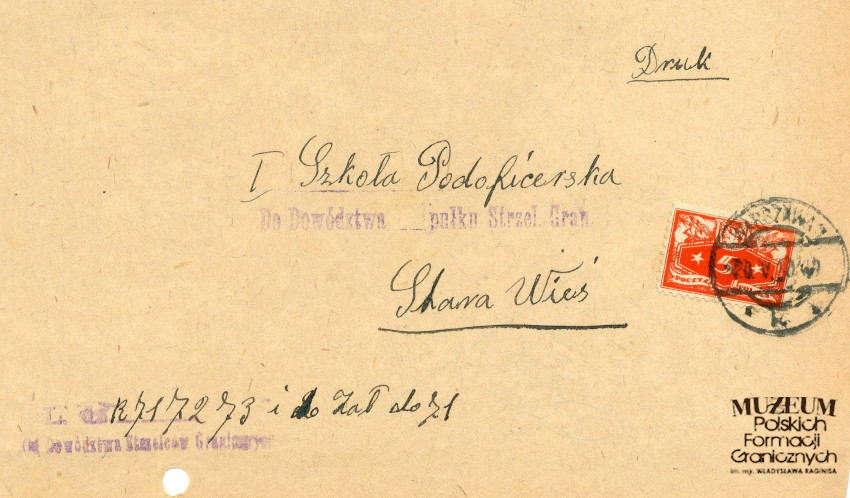 Druk
I Szkoła Podoficerska
Do Dowództwa pułku Strzel. Gran.
Stara Wieś
WARSZAWA
POCZTA
L.
R 71 72 73 i do Zał do 71
Dowództwa Strzelców Granicznych
MUZEUM
Polskich
Formacji
Granicznych
im. mjr. WŁADYSŁAWA RAGINISA